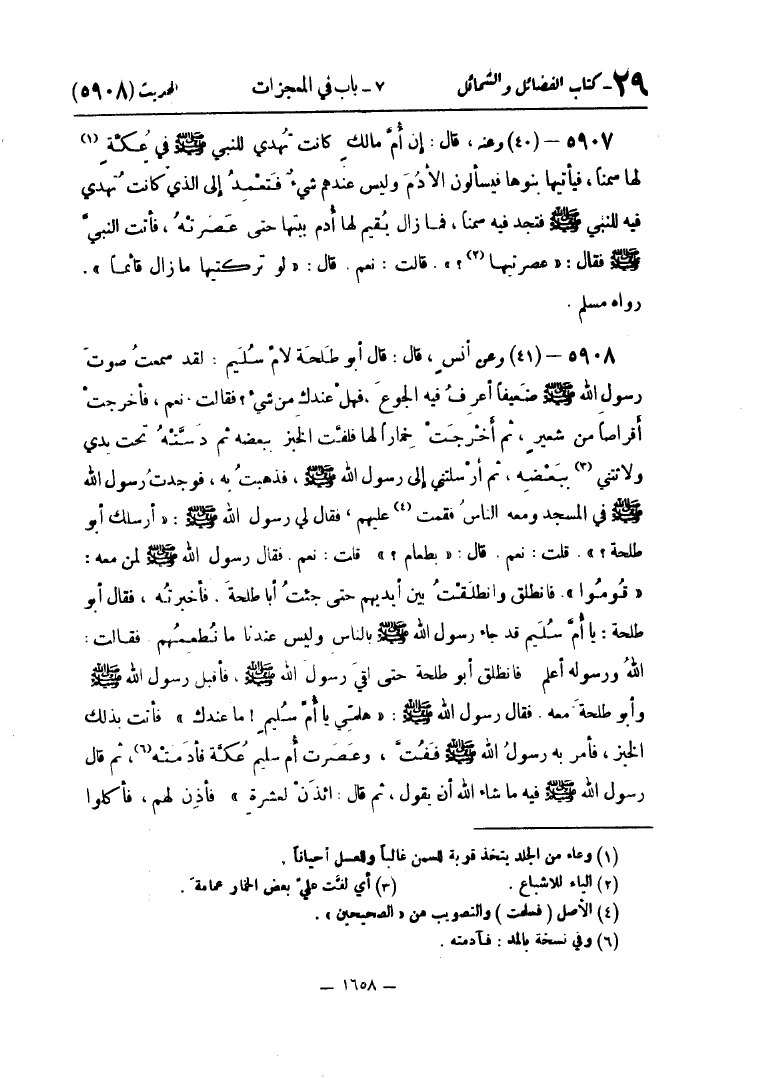 ٢٩ - كتاب الفضائل والشمائل ٧ - باب في المعجزات الحديث (٥٩٠٨)
٥٩٠٧ - (٤٠) وعنه ، قال : إن أُمَّ مالكٍ كانت تُهدي للنبي ﷺ في عُكَّةٍ (١)
لها سمناً ، فيأتيها بنوها فيسألون الأُدُمَ وليس عندهم شيءٌ فَتَعْمِدُ إلى الذي كانت تُهدي
فيه للنبي ﷺ فتجد فيه سمناً ، فما زال يُقيم لها أُدم بيتها حتى عَصَرَتْهُ ، فأتت النبيَّ
ﷺ فقال : « عصرتيها (٢) ؟ » . قالت : نعم . قال : « لو تركتيها ما زال قائماً » .
رواه مسلم .
٥٩٠٨ - (٤١) وعن أنسٍ ، قال : قال أبو طلحة لأمّ سُلَيم : لقد سمعتُ صوتَ
رسول الله ﷺ ضَعيفاً أعرفُ فيه الجوعَ ، فهلْ عندك من شيءٍ ؟ فقالت : نعم ، فأخرجتْ
أقراصاً من شعيرٍ ، ثم أَخْرجَتْ خِماراً لها فلفَّت الخبز ببعضه ثم دَسَّتْهُ تحت يدي
ولاثتني (٣) ببَعْضِه ، ثم أرْسلتني إلى رسول الله ﷺ ، فذهبتُ به ، فوجدتُ رسول الله
ﷺ في المسجد ومعه الناسُ فقمت (٤) عليهم ، فقال لي رسول الله ﷺ : « أرسلك أبو
طلحة ؟ » . قلت : نعم . قال : « بطعام ؟ » قلت : نعم . فقال رسول الله ﷺ لمن معه :
« قُومُوا » . فانطلق وانطلَقْتُ بين أيديهم حتى جئتُ أبا طلحةَ . فأخبرتُه ، فقال أبو
طلحة : يا أُمَّ سُلَيم قد جاء رسول الله ﷺ بالناس وليس عندنا ما نُطعمُهم . فقالت :
اللهُ ورسوله أعلم فانطلق أبو طلحة حتى لقيَ رسول الله ﷺ ، فأقبل رسول الله ﷺ
وأبو طلحةَ معه . فقال رسول الله ﷺ : « هلمّي يا أُمَّ سُليمٍ ! ما عندك » فأتت بذلك
الخبز ، فأمر به رسولُ الله ﷺ فَفُتَّ ، وعَصَرت أم سليم عُكَّة فأدَمَتْه (٦) ، ثم قال
رسول الله ﷺ فيه ما شاء الله أن يقول ، ثم قال : ائذَنْ لعشرةٍ » فأذِن لهم ، فأكلوا
(١) وعاء من الجلد يتخذ قربة للسمن غالباً وللعسل أحياناً .
(٢) الياء للاشباع . (٣) أي لفَّت عليّ بعض الخمار عمامة .
(٤) الأصل ( فسلمت ) والتصويب من « الصحيحين » .
(٦) وفي نسخة بالمد : فآدمته .
- ١٦٥٨ -